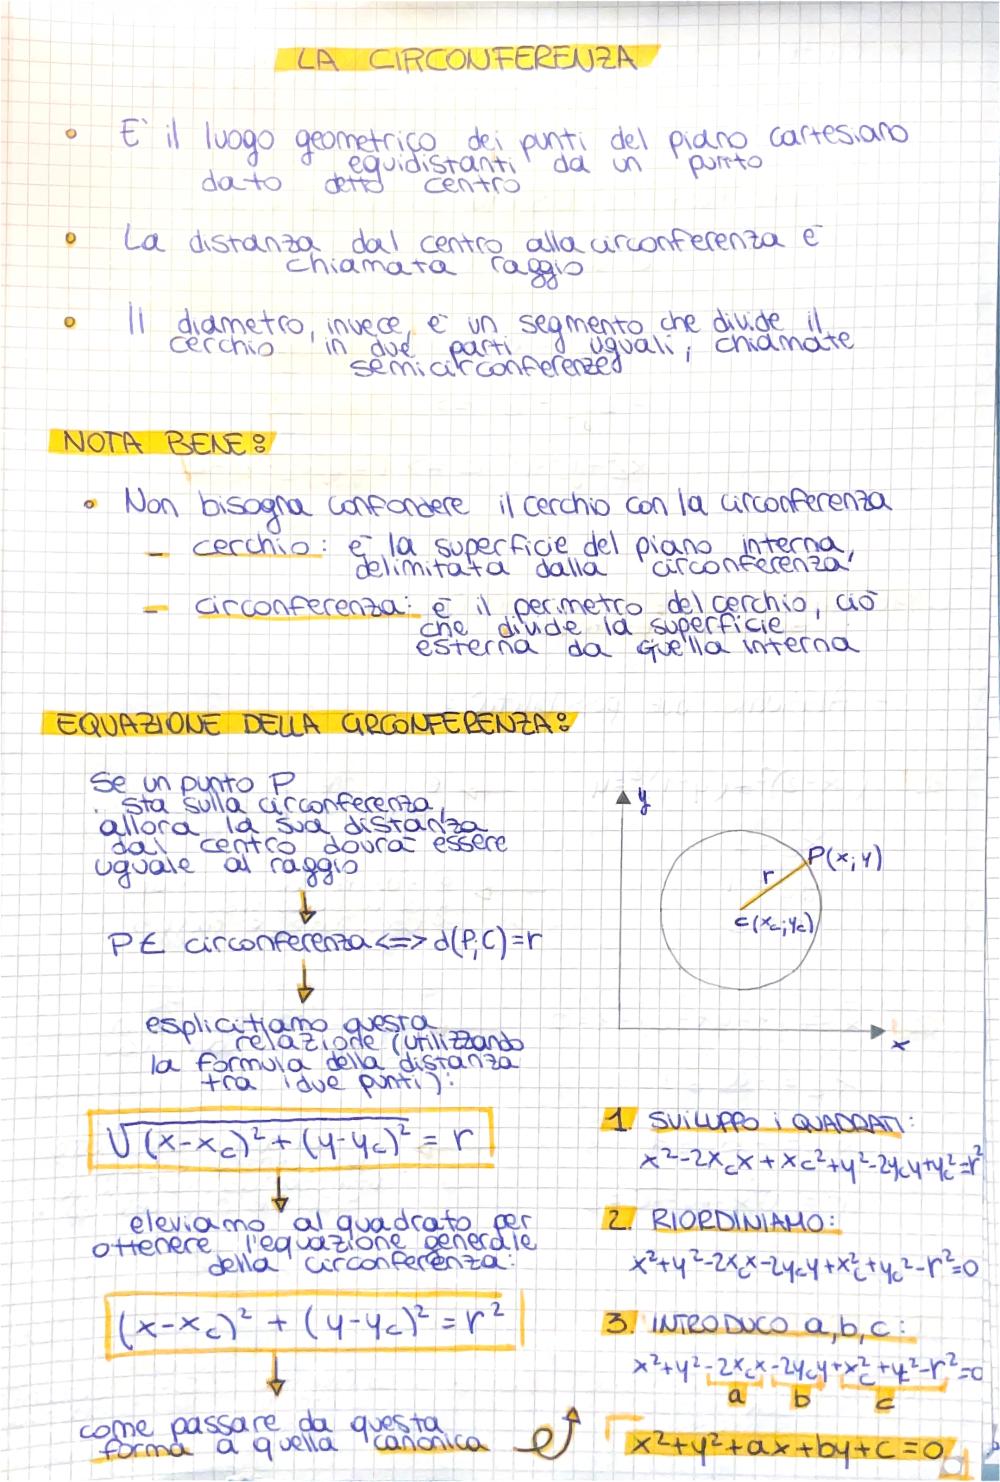 LA CIRCONFERENZA
È il luogo geometrico dei punti del piano cartesiano
equidistanti da un punto
dato detto centro
La distanza dal centro alla circonferenza è
chiamata raggio
Il diametro, invece, è un segmento che divide il
cerchio in due parti uguali, chiamate
semicirconferenze
NOTA BENE:
Non bisogna confondere il cerchio con la circonferenza
- cerchio: è la superficie del piano interna,
delimitata dalla circonferenza
- circonferenza: è il perimetro del cerchio, ciò
che divide la superficie
esterna da quella interna
EQUAZIONE DELLA CIRCONFERENZA:
Se un punto P
sta sulla circonferenza,
allora la sua distanza
dal centro dovrà essere
uguale al raggio
P∈ circonferenza <=> d(P;C)=r
esplicitiamo questa
relazione (utilizzando
la formula della distanza
tra i due punti):
√(x-x_c)² + (y-y_c)² = r
eleviamo al quadrato per
ottenere l'equazione generale
della circonferenza:
(x-x_c)² + (y-y_c)² = r²
come passare da questa
forma a quella canonica
y
P(x;y)
r
C(x_c;y_c)
x
1. SVILUPPO i QUADRATI:
x²-2x_cx+x_c²+y²-2y_cy+y_c²=r²
2. RIORDINIAMO:
x²+y²-2x_cx-2y_cy+x_c²+y_c²-r²=0
3. INTRODUCO a,b,c:
x²+y²-2x_cx-2y_cy+x_c²+y_c²-r²=0
a b c
x²+y²+ax+by+c=0